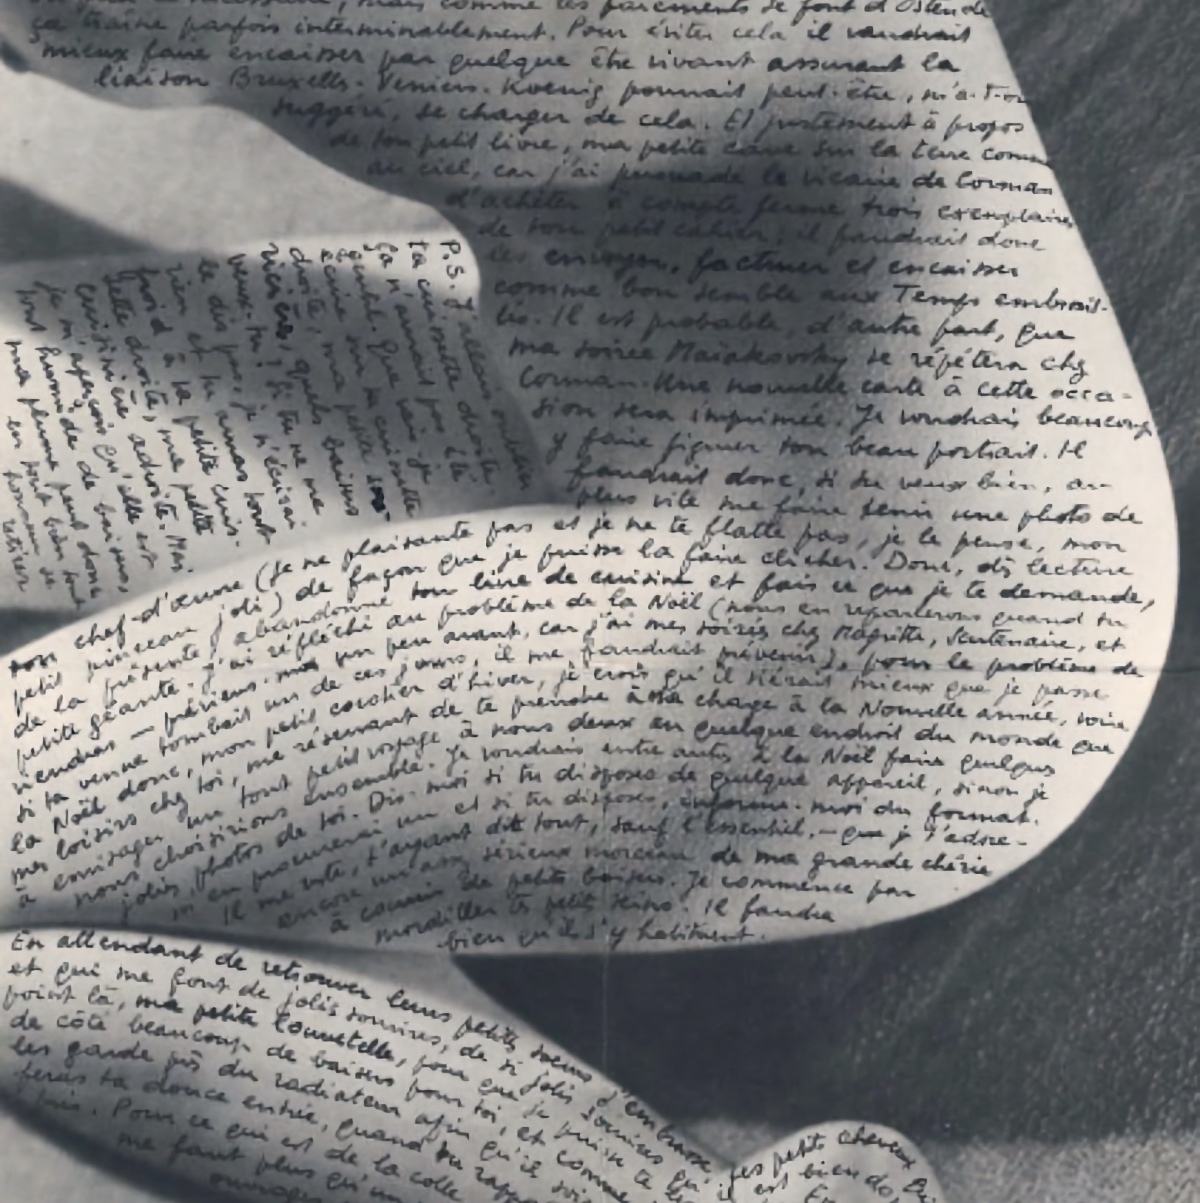 mais comme les paiements se font d'Ostende
ça traîne parfois interminablement. Pour éviter cela il vaudrait
mieux faire encaisser par quelque être vivant assurant la
liaison Bruxelles-Verviers. Koenig pourrait peut-être, m'a-t-on
suggéré, se charger de cela. Et justement à propos
de ton petit livre, ma petite cave sur la terre comme
au ciel, car j'ai persuadé le vicaire de Corman
d'acheter à compte ferme trois exemplaires
de ton petit cahier; il faudrait donc
les envoyer, facturer et encaisser
comme bon semble aux Temps embrouil-
lés. Il est probable, d'autre part, que
ma soirée Maiakovsky se répétera chez
Corman. Une nouvelle carte à cette occa-
sion sera imprimée. Je voudrais beaucoup
y faire figurer ton beau portrait. Il
faudrait donc, si tu veux bien, au
plus vite me faire tenir une photo de
ton chef-d'œuvre (je ne plaisante pas et je ne te flatte pas, je le pense, mon
petit pinceau joli) de façon que je puisse la faire clicher. Donc, dès lecture
de la présente, abandonne ton livre de cuisine et fais ce que je te demande,
petite géante. J'ai réfléchi au problème de la Noël (nous en reparlerons quand tu
viendras — préviens-moi un peu avant, car j'ai mes soirées chez Magritte, Scutenaire, et
si ta venue tombait un de ces jours, il me faudrait prévenir), pour le problème de
la Noël donc, mon petit cocotier d'hiver, je crois qu'il siérait mieux que je passe
mes loisirs chez toi, me réservant de te prendre à ma charge à la Nouvelle année, voire
à envisager un tout petit voyage à nous deux en quelque endroit du monde que
nous choisirions ensemble. Je voudrais entre autres à la Noël faire quelques
jolies photos de toi. Dis-moi si tu disposes de quelque appareil, sinon je
m'en procurerai un et si tu disposes, informe-moi du format.
Il me reste, t'ayant dit tout, sauf l'essentiel, — que je t'adore —
encore un assez sérieux morceau de ma grande chérie
à couvrir de petits baisers. Je commence par
mordiller tes petits seins. Il faudra
bien qu'ils s'y habituent.
P.S. J'allais oublier
ta cuissette droite.
Ça n'aurait pas été
gentil. Que vais-je
écrire sur ta cuissette
droite, ma
quels baisers
veux-tu? Si tu ne me
le dis pas, je n'écrirai
rien et tu auras tout
froid à ta petite cuis-
sette droite, ma petite
cuisinière adroite. Mais
je m'aperçois qu'elle est
tout humide de baisers,
ma plume peut donc
en tout bien tout
honneur se
retirer
En attendant de retrouver leurs petits sœurs d'en
et qui me font de jolis sourires, de si jolis sourires
point là, ma petite tourterelle, pour que je puisse te
de côté beaucoup de baisers pour toi, et comme
les garde près du radiateur afin qu'ils soient
feras ta douce entrée, quand tu
Pour ce qui est de la colle
me faut plus qu'un
ouvrages
tes petits cheveux
il est bien